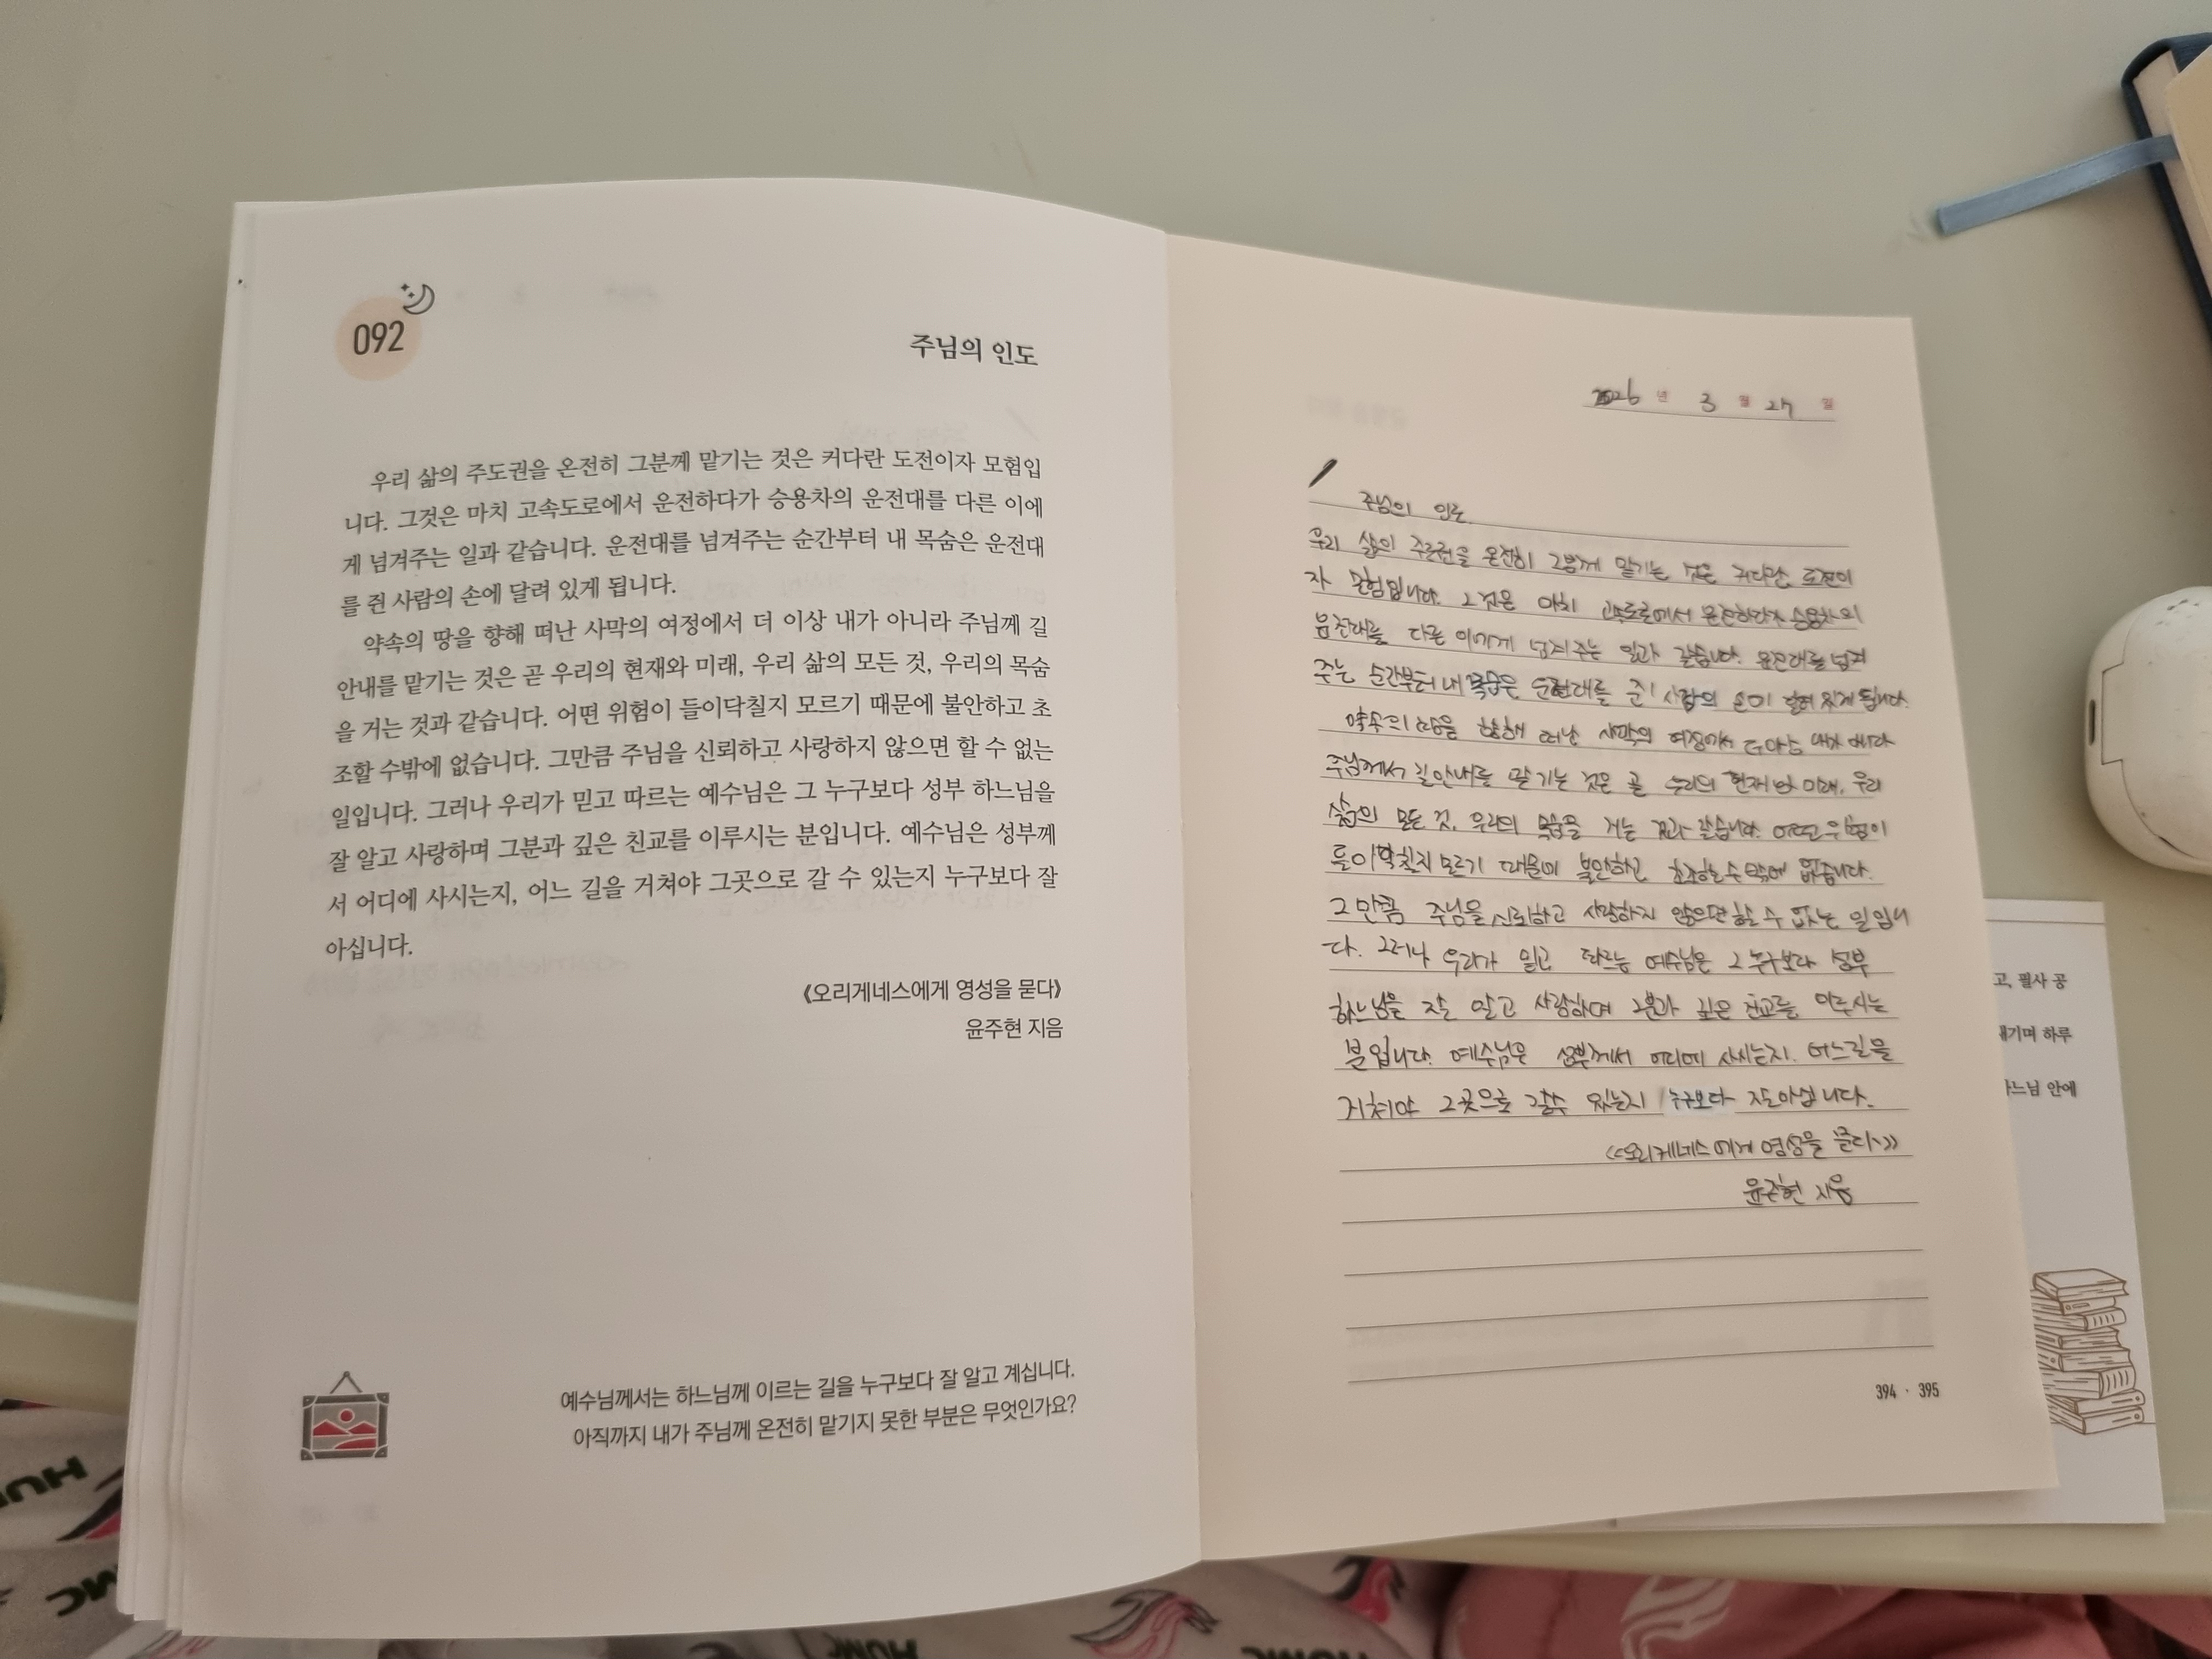 092
주님의 인도
우리 삶의 주도권을 온전히 그분께 맡기는 것은 커다란 도전이자 모험입
니다. 그것은 마치 고속도로에서 운전하다가 승용차의 운전대를 다른 이에
게 넘겨주는 일과 같습니다. 운전대를 넘겨주는 순간부터 내 목숨은 운전대
를 쥔 사람의 손에 달려 있게 됩니다.
약속의 땅을 향해 떠난 사막의 여정에서 더 이상 내가 아니라 주님께 길
안내를 맡기는 것은 곧 우리의 현재와 미래, 우리 삶의 모든 것, 우리의 목숨
을 거는 것과 같습니다. 어떤 위험이 들이닥칠지 모르기 때문에 불안하고 초
조할 수밖에 없습니다. 그만큼 주님을 신뢰하고 사랑하지 않으면 할 수 없는
일입니다. 그러나 우리가 믿고 따르는 예수님은 그 누구보다 성부 하느님을
잘 알고 사랑하며 그분과 깊은 친교를 이루시는 분입니다. 예수님은 성부께
서 어디에 사시는지, 어느 길을 거쳐야 그곳으로 갈 수 있는지 누구보다 잘
아십니다.
《오리게네스에게 영성을 묻다》
윤주현 지음
예수님께서는 하느님께 이르는 길을 누구보다 잘 알고 계십니다.
아직까지 내가 주님께 온전히 맡기지 못한 부분은 무엇인가요?
2026 년 3 월 27 일
주님의 인도
우리 삶의 주도권을 온전히 그분께 맡기는 것은 커다란 도전이
자 모험입니다. 그것은 마치 고속도로에서 운전하다가 승용차의
운전대를 다른 이에게 넘겨주는 일과 같습니다. 운전대를 넘겨
주는 순간부터 내 목숨은 운전대를 쥔 사람의 손에 달려 있게 됩니다.
약속의 땅을 향해 떠난 사막의 여정에서 내가
주님께서 길안내를 맡기는 것은 곧 우리의 현재와 미래, 우리
삶의 모든 것, 우리의 목숨을 거는 것과 같습니다. 어떤 위험이
들이닥칠지 모르기 때문에 불안하고 초조할 수밖에 없습니다.
그만큼 주님을 신뢰하고 사랑하지 않으면 할 수 없는 일입니
다. 그러나 우리가 믿고 따르는 예수님은 그 누구보다 성부
하느님을 잘 알고 사랑하며 그분과 깊은 친교를 이루시는
분입니다. 예수님은 성부께서 어디에 사시는지, 어느길을
거쳐야 그곳으로 갈수 있는지 누구보다 잘아십니다.
《오리게네스에게 영성을 묻다》
윤주현 지음
394 · 395
고, 필사 공
새기며 하루
하느님 안에
HUMC